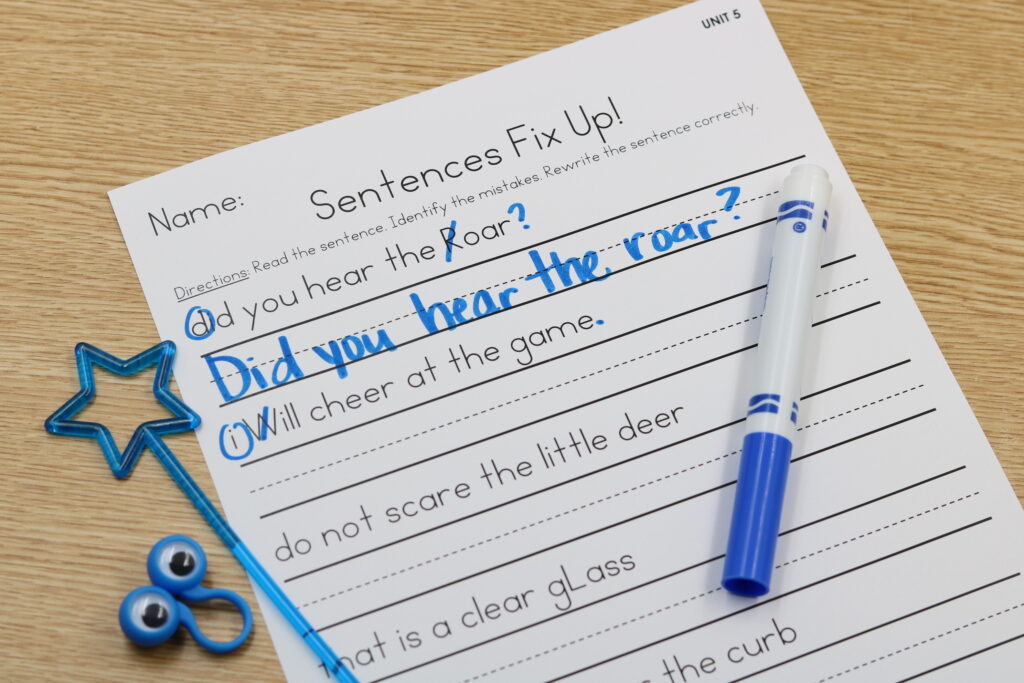 UNIT 5
Name:
Sentences Fix Up!
Directions: Read the sentence. Identify the mistakes. Rewrite the sentence correctly.
did you hear the Roar?
Did you hear the roar?
i Will cheer at the game.
do not scare the little deer
that is a clear gLass
the curb